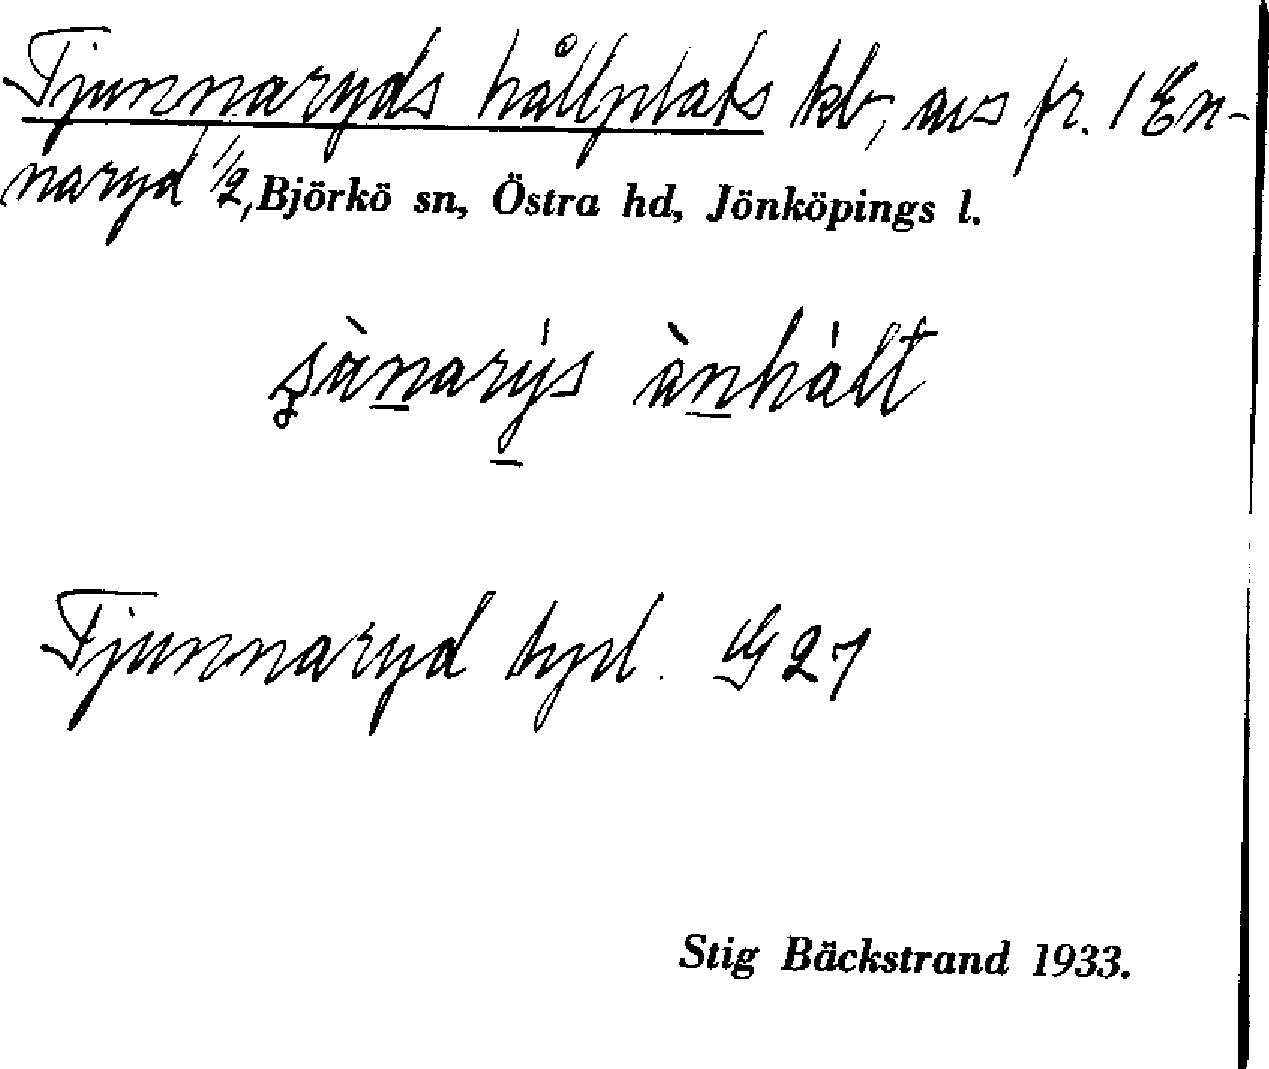 Tjunnaryds hållplats kb, avs fr. 1 En-
naryd 1/2, Björkö sn, Östra hd, Jönköpings l.
ànhàlt
Tjunnaryd hpl. G 27
Stig Bäckstrand 1933.